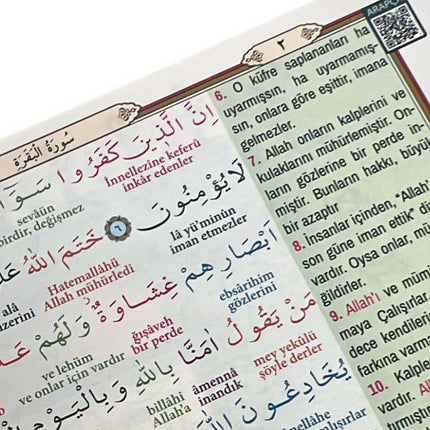 ARAPÇA
٢
سُورَةُ الْبَقَرَةِ
اِنَّ الَّذِينَ كَفَرُوا سَوَٓاءٌ
İnnellezine keferû
inkâr edenler
sevâün
birdir, değişmez
لَا يُؤْمِنُونَ ٦ خَتَمَ اللّٰهُ
lâ yü'minûn
iman etmezler
Hatemallâhü
Allah mühürledi
alâ
اَبْصَارِهِمْ غِشَاوَةٌ وَلَهُمْ
ebsârihim
gözlerini
ğışâveh
bir perde
ve lehüm
ve onlar için vardır
مَنْ يَقُولُ اٰمَنَّا بِاللّٰهِ وَبِالْيَوْمِ
mey yekûlü
şöyle derler
âmennâ
inandık
billâhi
Allah'a
يُخَادِعُونَ اللّٰهَ
6. O küfre saplananları ha
uyarmışsın, ha uyarmamış-
sın, onlara göre eşittir, imana
gelmezler.
7. Allah onların kalplerini ve
kulaklarını mühürlemiştir. On-
ların gözlerine bir perde in-
miştir. Bunların hakkı, büyük
bir azaptır
8. İnsanlar içinden, "Allah'
son güne iman ettik" di
vardır. Oysa onlar, mü
ğildirler.
9. Allah'ı ve mümi
maya Çalışırlar.
dece kendilerin
farkına varma
10. Kalple
vardır. All